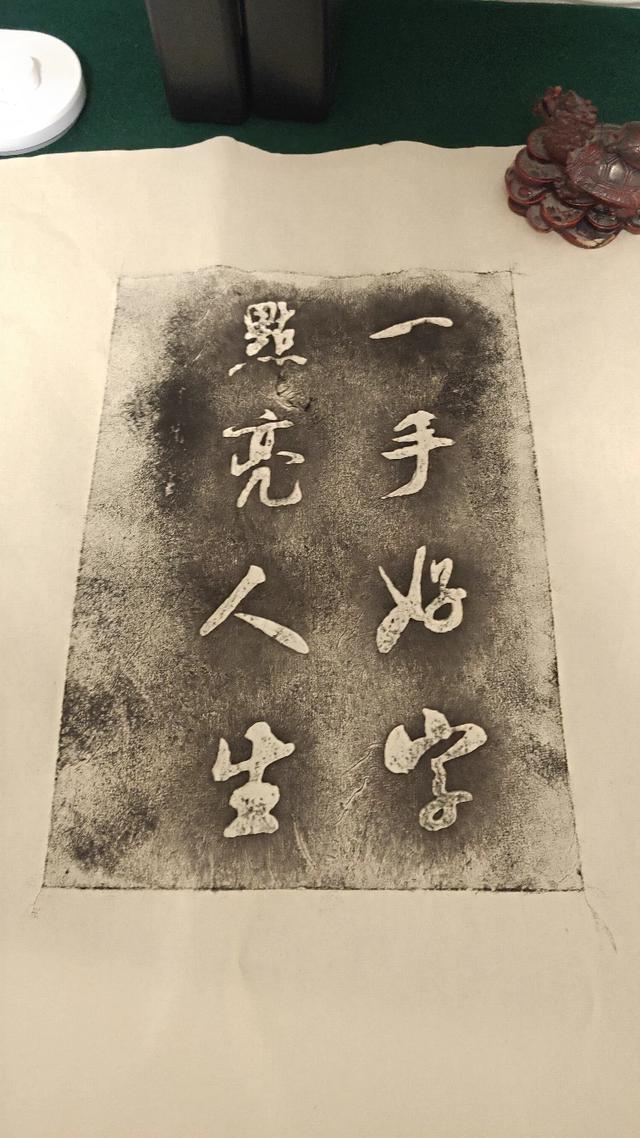 一手好字
點亮人生